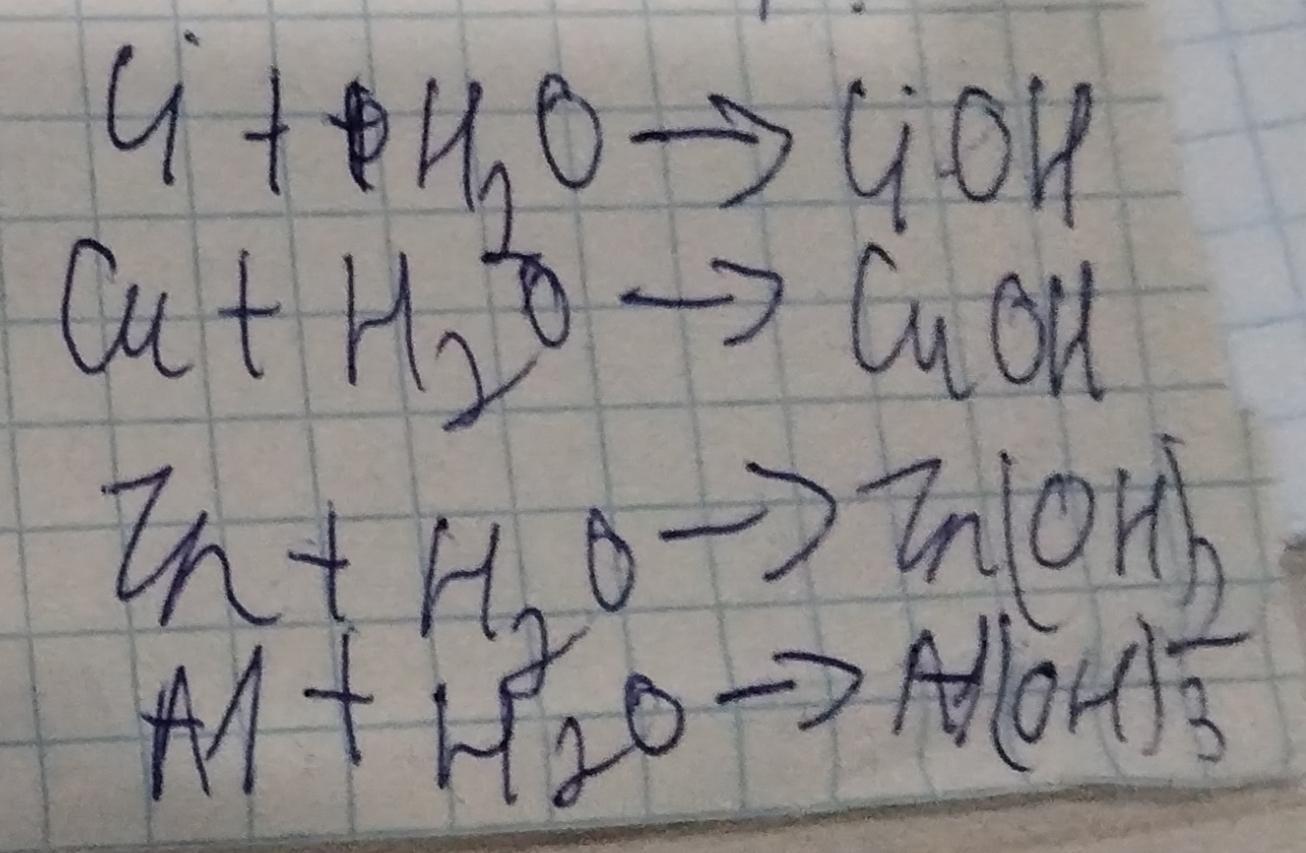 Li + H₂O → LiOH
Cu + H₂O → CuOH
Zn + H₂O → Zn(OH)₂
Al + H₂O → Al(OH)₃